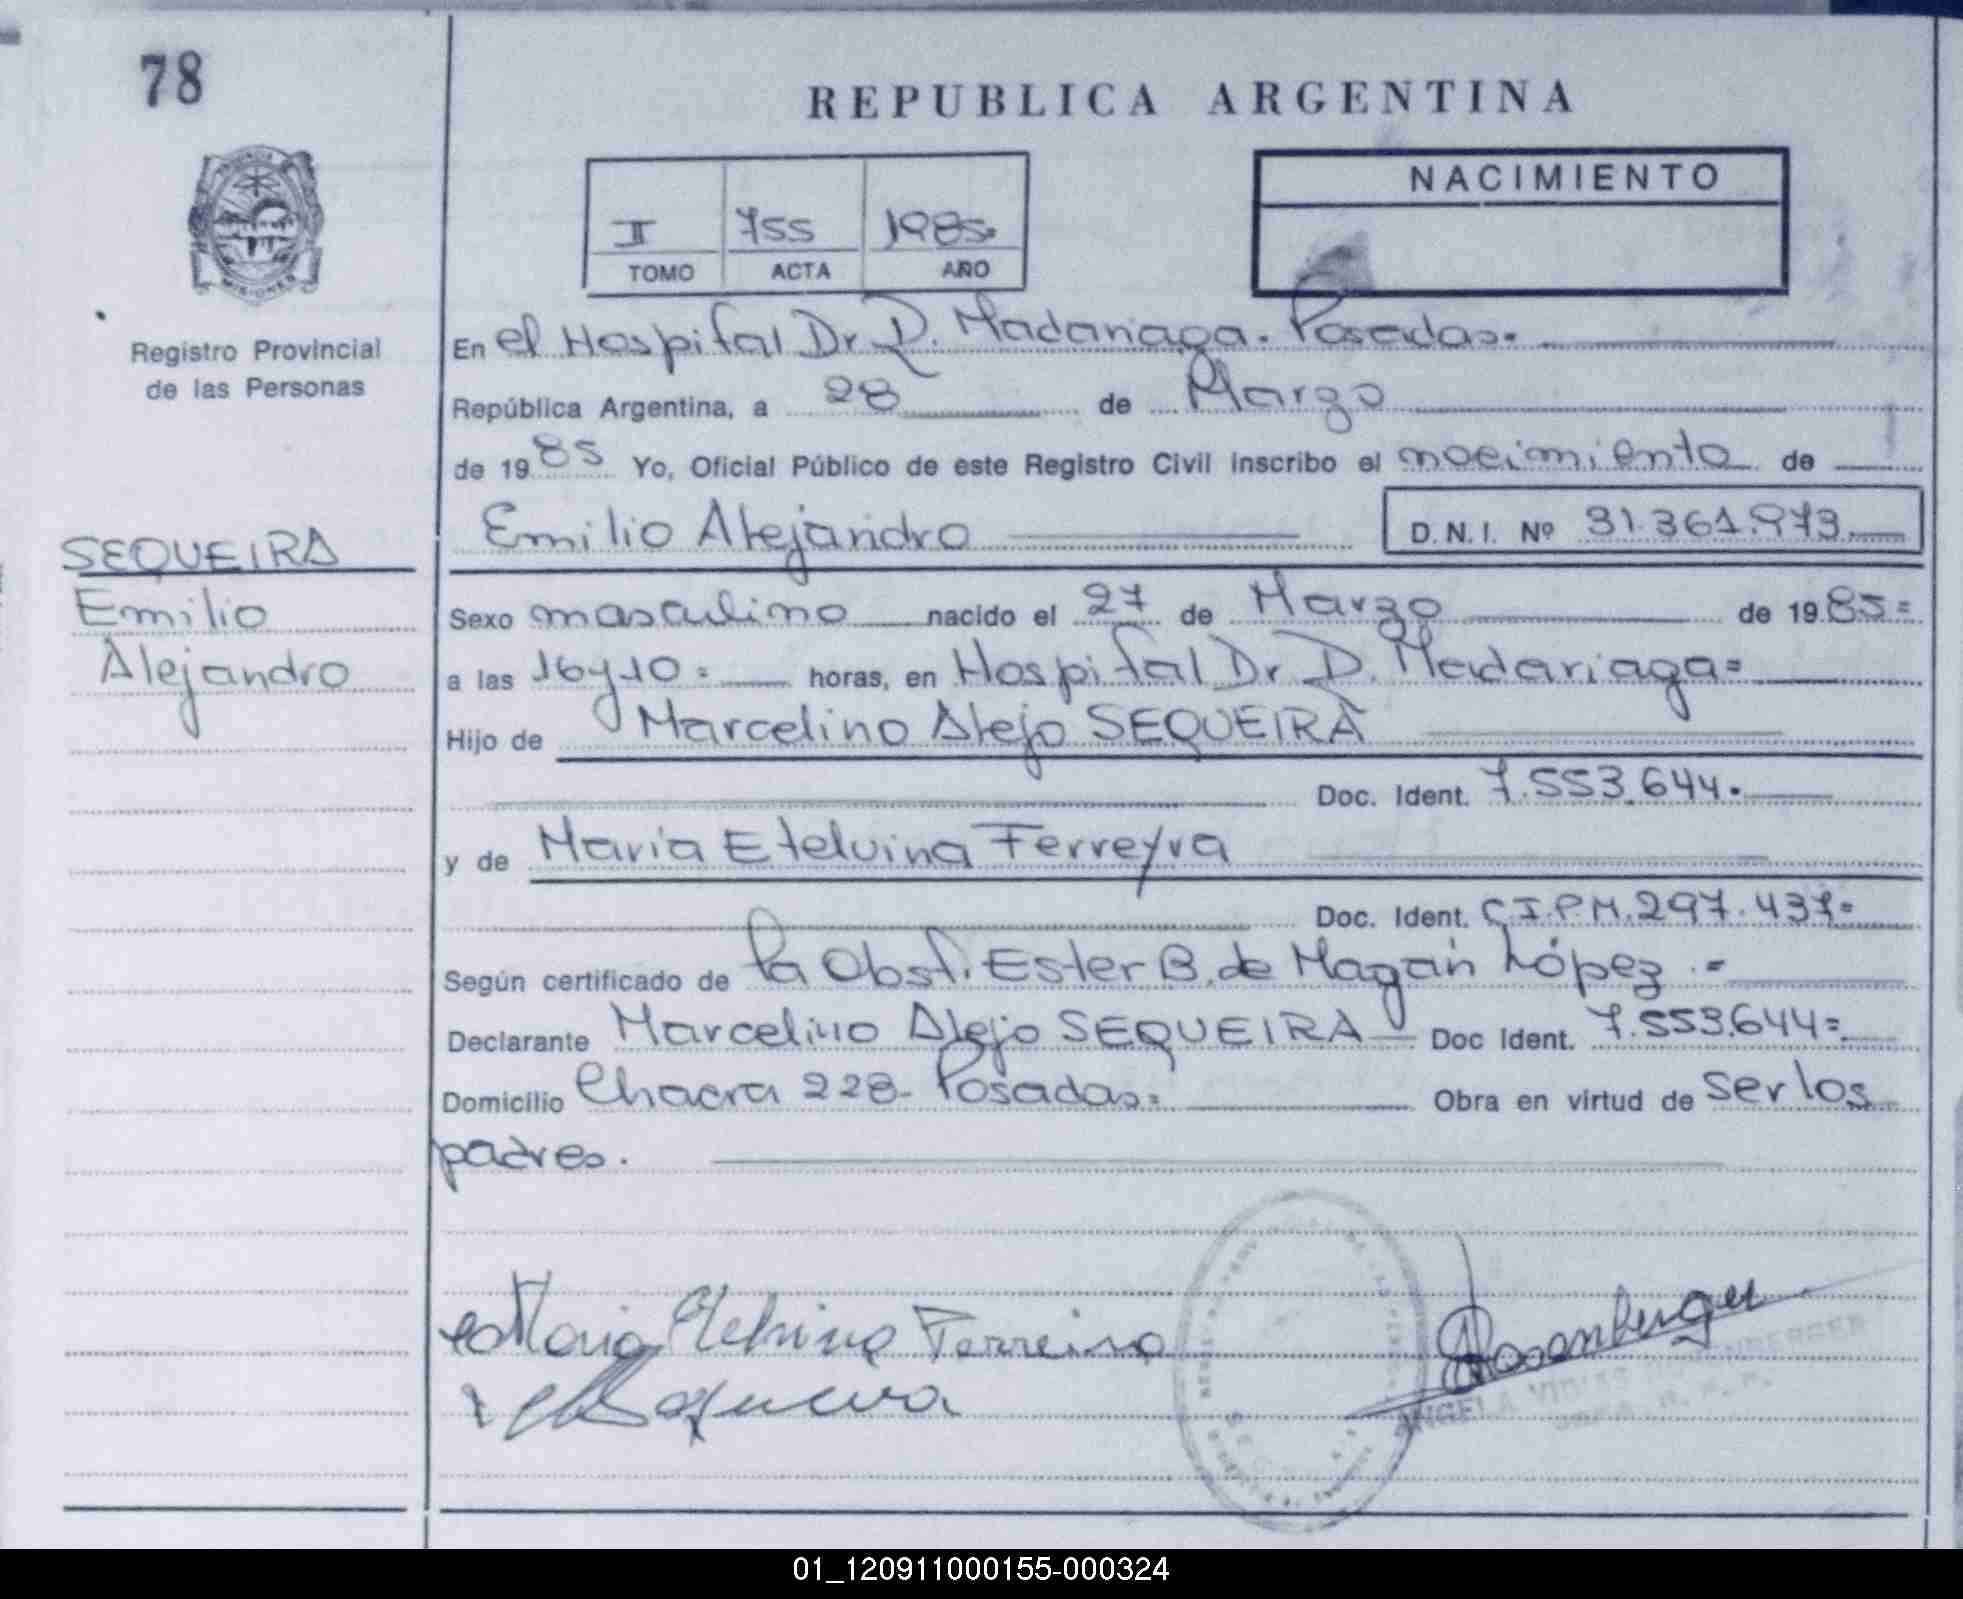 78
REPUBLICA ARGENTINA
NACIMIENTO
I 755 1985.
TOMO ACTA AÑO
MISIONES
Registro Provincial
de las Personas
En el Hospital Dr. D. Madariaga. Posadas.
República Argentina, a 28 de Marzo
de 1985 Yo, Oficial Público de este Registro Civil inscribo el nacimiento de
Emilio Alejandro D.N.I. Nº 31.361.973.
SEQUEIRA
Emilio
Alejandro
Sexo masculino nacido el 27 de Marzo de 1985=
a las 16y10= horas, en Hospital Dr D. Madariaga=
Hijo de Marcelino Alejo SEQUEIRA
Doc. Ident. 7.553.644.
y de María Etelvina Ferreyra
Doc. Ident. C.I.P.M. 297.437=
Según certificado de la Obst. Ester B. de Magán López.=
Declarante Marcelino Alejo SEQUEIRA Doc Ident. 7.553.644=
Domicilio Chacra 228- Posadas= Obra en virtud de ser los
padres.
Maria Etelvina Ferreira
Sequeira
Rosenberger
ANGELA ROSENBERGER
01_120911000155-000324